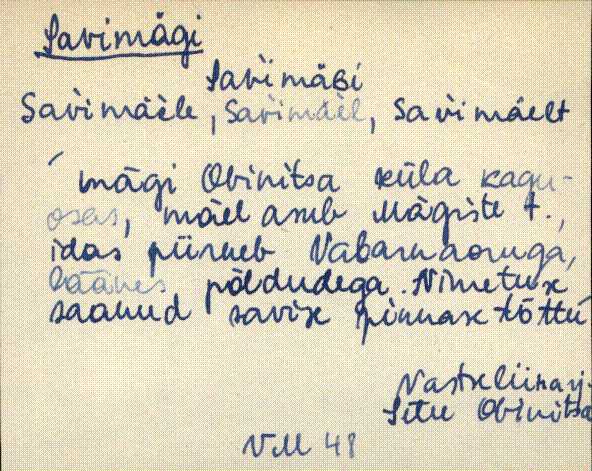 Savimägi
Savimäɢi
Savimäele, Savimäel, Savimäelt
mägi Obinitsa küla kagu-
osas, mäel asub Mägiste t.,
idas piirneb Vabarnaoruga,
läänes põldudega. Nimetuse
saanud savise pinnase tõttu
Vastseliina rj.
Setu Obinitsa
VM 48